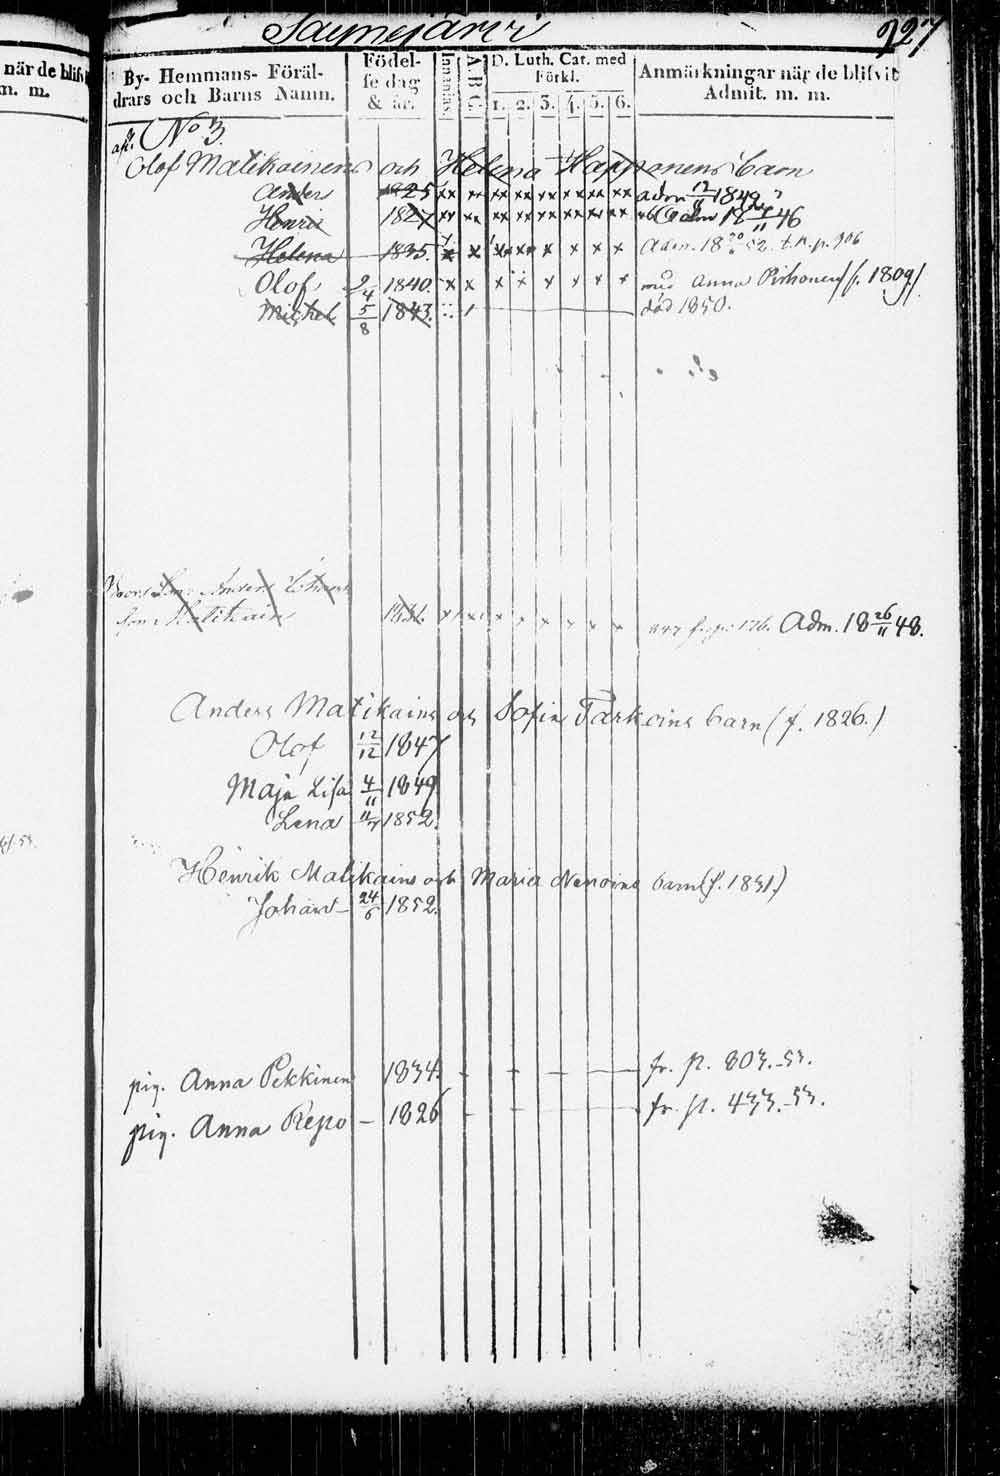 Saynejärvi 227
när de blifvit
m. m.
By- Hemmans- Föräl-
drars och Barns Namn.
Födel-
se dag
& år.
Innanläs.
A.B.C.
D. Luth. Cat. med
Förkl.
1. 2. 3. 4. 5. 6.
Anmärkningar när de blifvit
Admit. m. m.
No 3.
Olof Matikainens och Helena Happonens barn
Ander 1825 adm 12/11 1842
Henric 1827 46
Helena 1835. Adm. 18 52. t. n. p. 906
Olof 2/4 1840. med Anna Pirhonen (f. 1809)
Michel 5/8 1843. död 1850.
Adm. 18 26/11 48.
Anders Matikains och Sofia Tarkoins barn (f. 1826.)
Olof 12/12 1847
Maja Lisa 4/11 1849
Lena 1852.
Henrik Matikains och Maria Nenoins barn (f. 1831.)
Johan 24/6 1852.
pig. Anna Pekkinen 1834. fr. p. 803.-53.
pig. Anna Repo 1826 fr. p. 433.-53.